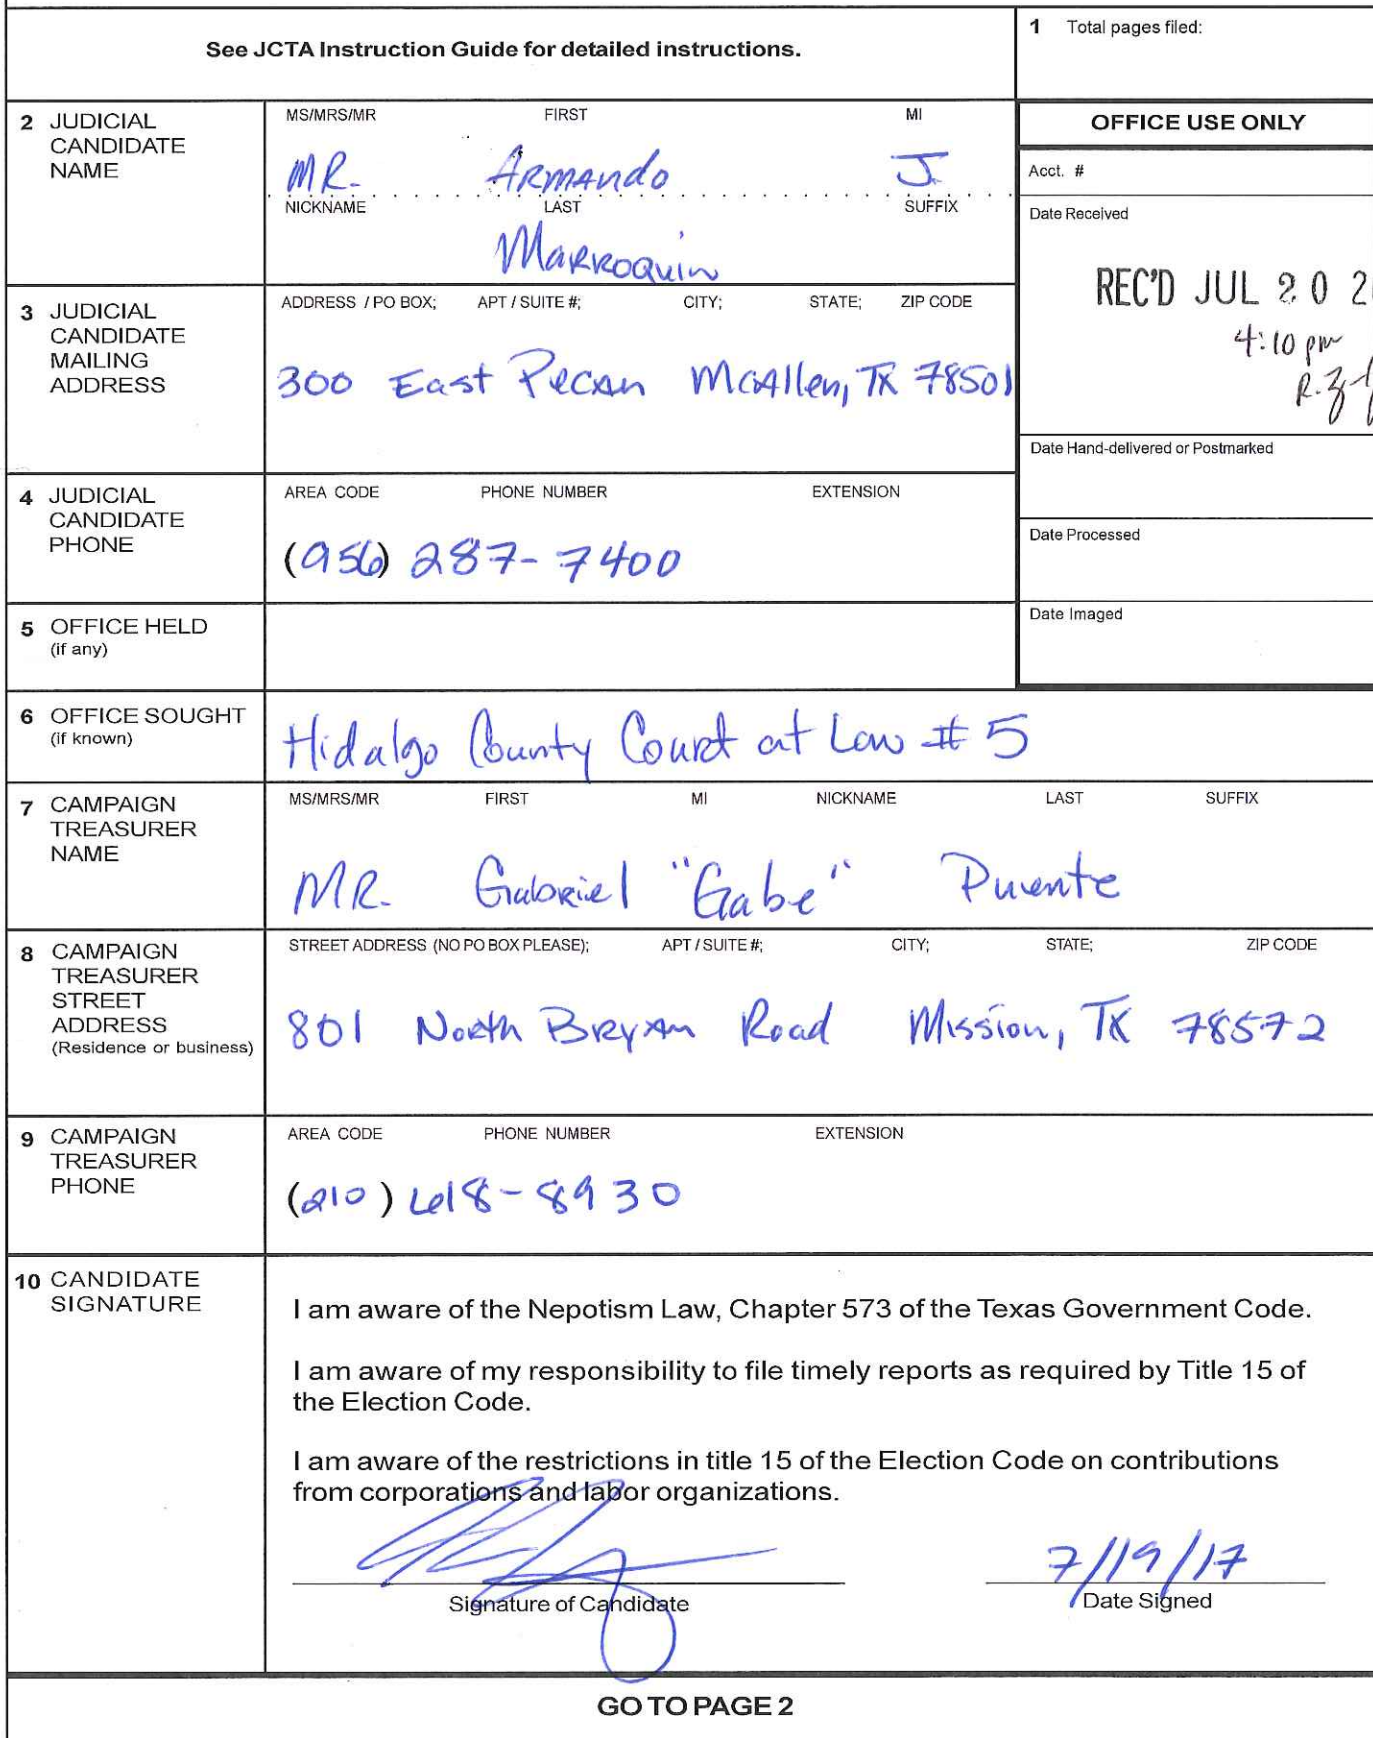 See JCTA Instruction Guide for detailed instructions.
1 Total pages filed:
2 JUDICIAL CANDIDATE NAME
MS/MRS/MR FIRST MI
MR. Armando J.
NICKNAME LAST SUFFIX
Marroquin
OFFICE USE ONLY
Acct. #
Date Received
REC'D JUL 20 2
4:10 pm
3 JUDICIAL CANDIDATE MAILING ADDRESS
ADDRESS / PO BOX; APT / SUITE #; CITY; STATE; ZIP CODE
300 East Pecan McAllen, TX 78501
Date Hand-delivered or Postmarked
4 JUDICIAL CANDIDATE PHONE
AREA CODE PHONE NUMBER EXTENSION
(956) 287-7400
Date Processed
5 OFFICE HELD (if any)
Date Imaged
6 OFFICE SOUGHT (if known)
Hidalgo County Court at Law #5
7 CAMPAIGN TREASURER NAME
MS/MRS/MR FIRST MI NICKNAME LAST SUFFIX
MR. Gabriel "Gabe" Puente
8 CAMPAIGN TREASURER STREET ADDRESS (Residence or business)
STREET ADDRESS (NO PO BOX PLEASE); APT / SUITE #; CITY; STATE; ZIP CODE
801 North Bryan Road Mission, TX 78572
9 CAMPAIGN TREASURER PHONE
AREA CODE PHONE NUMBER EXTENSION
(210) 618-8930
10 CANDIDATE SIGNATURE
I am aware of the Nepotism Law, Chapter 573 of the Texas Government Code.
I am aware of my responsibility to file timely reports as required by Title 15 of
the Election Code.
I am aware of the restrictions in title 15 of the Election Code on contributions
from corporations and labor organizations.
7/19/17
Signature of Candidate Date Signed
GO TO PAGE 2